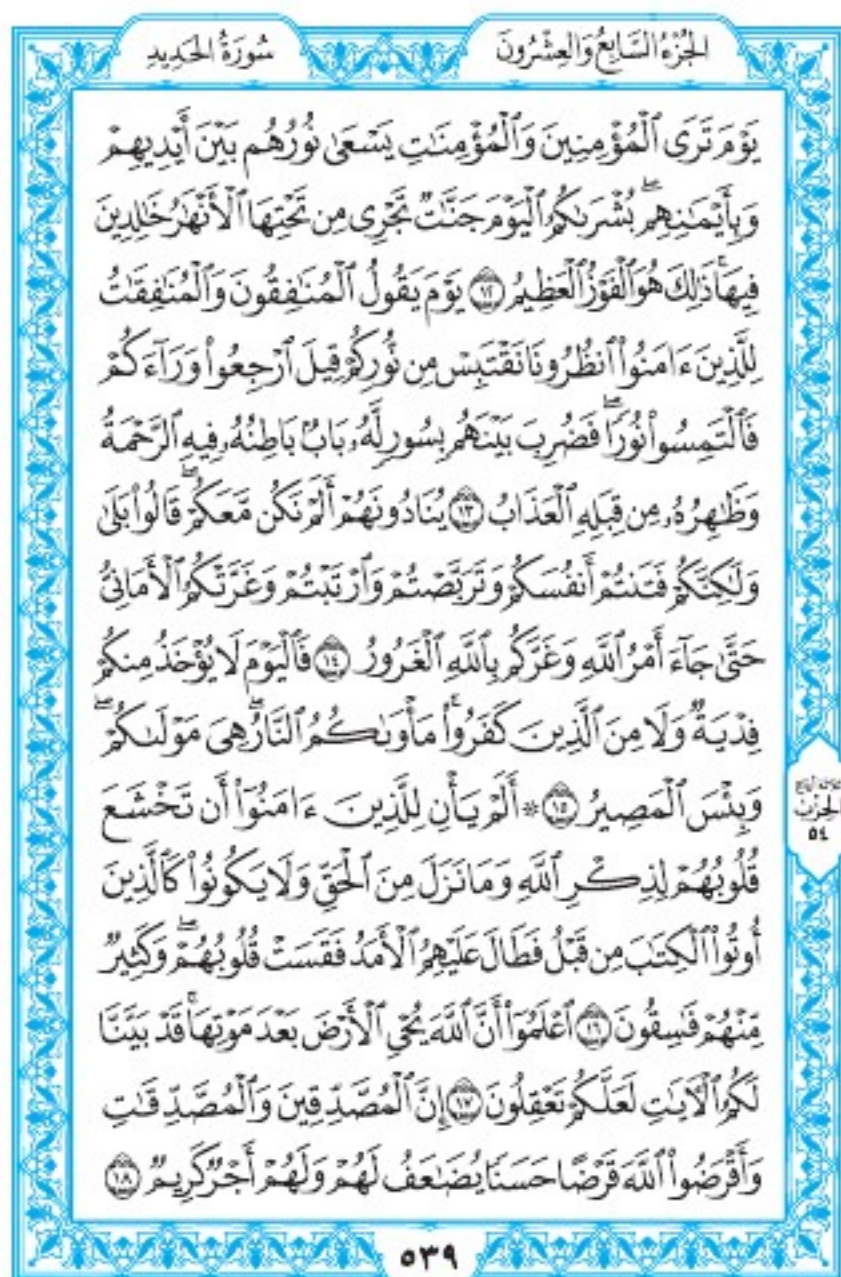 الجُزْءُ السَّابِعُ وَالعِشْرُونَ
سُورَةُ الحَدِيدِ
يَوْمَ تَرَى ٱلْمُؤْمِنِينَ وَٱلْمُؤْمِنَٰتِ يَسْعَىٰ نُورُهُم بَيْنَ أَيْدِيهِمْ
وَبِأَيْمَٰنِهِمۖ بُشْرَىٰكُمُ ٱلْيَوْمَ جَنَّٰتٌ تَجْرِى مِن تَحْتِهَا ٱلْأَنْهَٰرُ خَٰلِدِينَ
فِيهَاۚ ذَٰلِكَ هُوَ ٱلْفَوْزُ ٱلْعَظِيمُ ١٢ يَوْمَ يَقُولُ ٱلْمُنَٰفِقُونَ وَٱلْمُنَٰفِقَٰتُ
لِلَّذِينَ ءَامَنُوا۟ ٱنظُرُونَا نَقْتَبِسْ مِن نُّورِكُمْ قِيلَ ٱرْجِعُوا۟ وَرَآءَكُمْ
فَٱلْتَمِسُوا۟ نُورًاۖ فَضُرِبَ بَيْنَهُم بِسُورٍ لَّهُۥ بَابٌۢ بَاطِنُهُۥ فِيهِ ٱلرَّحْمَةُ
وَظَٰهِرُهُۥ مِن قِبَلِهِ ٱلْعَذَابُ ١٣ يُنَادُونَهُمْ أَلَمْ نَكُن مَّعَكُمْۖ قَالُوا۟ بَلَىٰ
وَلَٰكِنَّكُمْ فَتَنتُمْ أَنفُسَكُمْ وَتَرَبَّصْتُمْ وَٱرْتَبْتُمْ وَغَرَّتْكُمُ ٱلْأَمَانِىُّ
حَتَّىٰ جَآءَ أَمْرُ ٱللَّهِ وَغَرَّكُم بِٱللَّهِ ٱلْغَرُورُ ١٤ فَٱلْيَوْمَ لَا يُؤْخَذُ مِنكُمْ
فِدْيَةٌ وَلَا مِنَ ٱلَّذِينَ كَفَرُوا۟ۚ مَأْوَىٰكُمُ ٱلنَّارُۖ هِىَ مَوْلَىٰكُمْۖ
وَبِئْسَ ٱلْمَصِيرُ ١٥ ۞ أَلَمْ يَأْنِ لِلَّذِينَ ءَامَنُوٓا۟ أَن تَخْشَعَ
قُلُوبُهُمْ لِذِكْرِ ٱللَّهِ وَمَا نَزَلَ مِنَ ٱلْحَقِّ وَلَا يَكُونُوا۟ كَٱلَّذِينَ
أُوتُوا۟ ٱلْكِتَٰبَ مِن قَبْلُ فَطَالَ عَلَيْهِمُ ٱلْأَمَدُ فَقَسَتْ قُلُوبُهُمْۖ وَكَثِيرٌ
مِّنْهُمْ فَٰسِقُونَ ١٦ ٱعْلَمُوٓا۟ أَنَّ ٱللَّهَ يُحْىِ ٱلْأَرْضَ بَعْدَ مَوْتِهَاۚ قَدْ بَيَّنَّا
لَكُمُ ٱلْءَايَٰتِ لَعَلَّكُمْ تَعْقِلُونَ ١٧ إِنَّ ٱلْمُصَّدِّقِينَ وَٱلْمُصَّدِّقَٰتِ
وَأَقْرَضُوا۟ ٱللَّهَ قَرْضًا حَسَنًا يُضَٰعَفُ لَهُمْ وَلَهُمْ أَجْرٌ كَرِيمٌ ١٨
الحِزْب
٥٤
٥٣٩